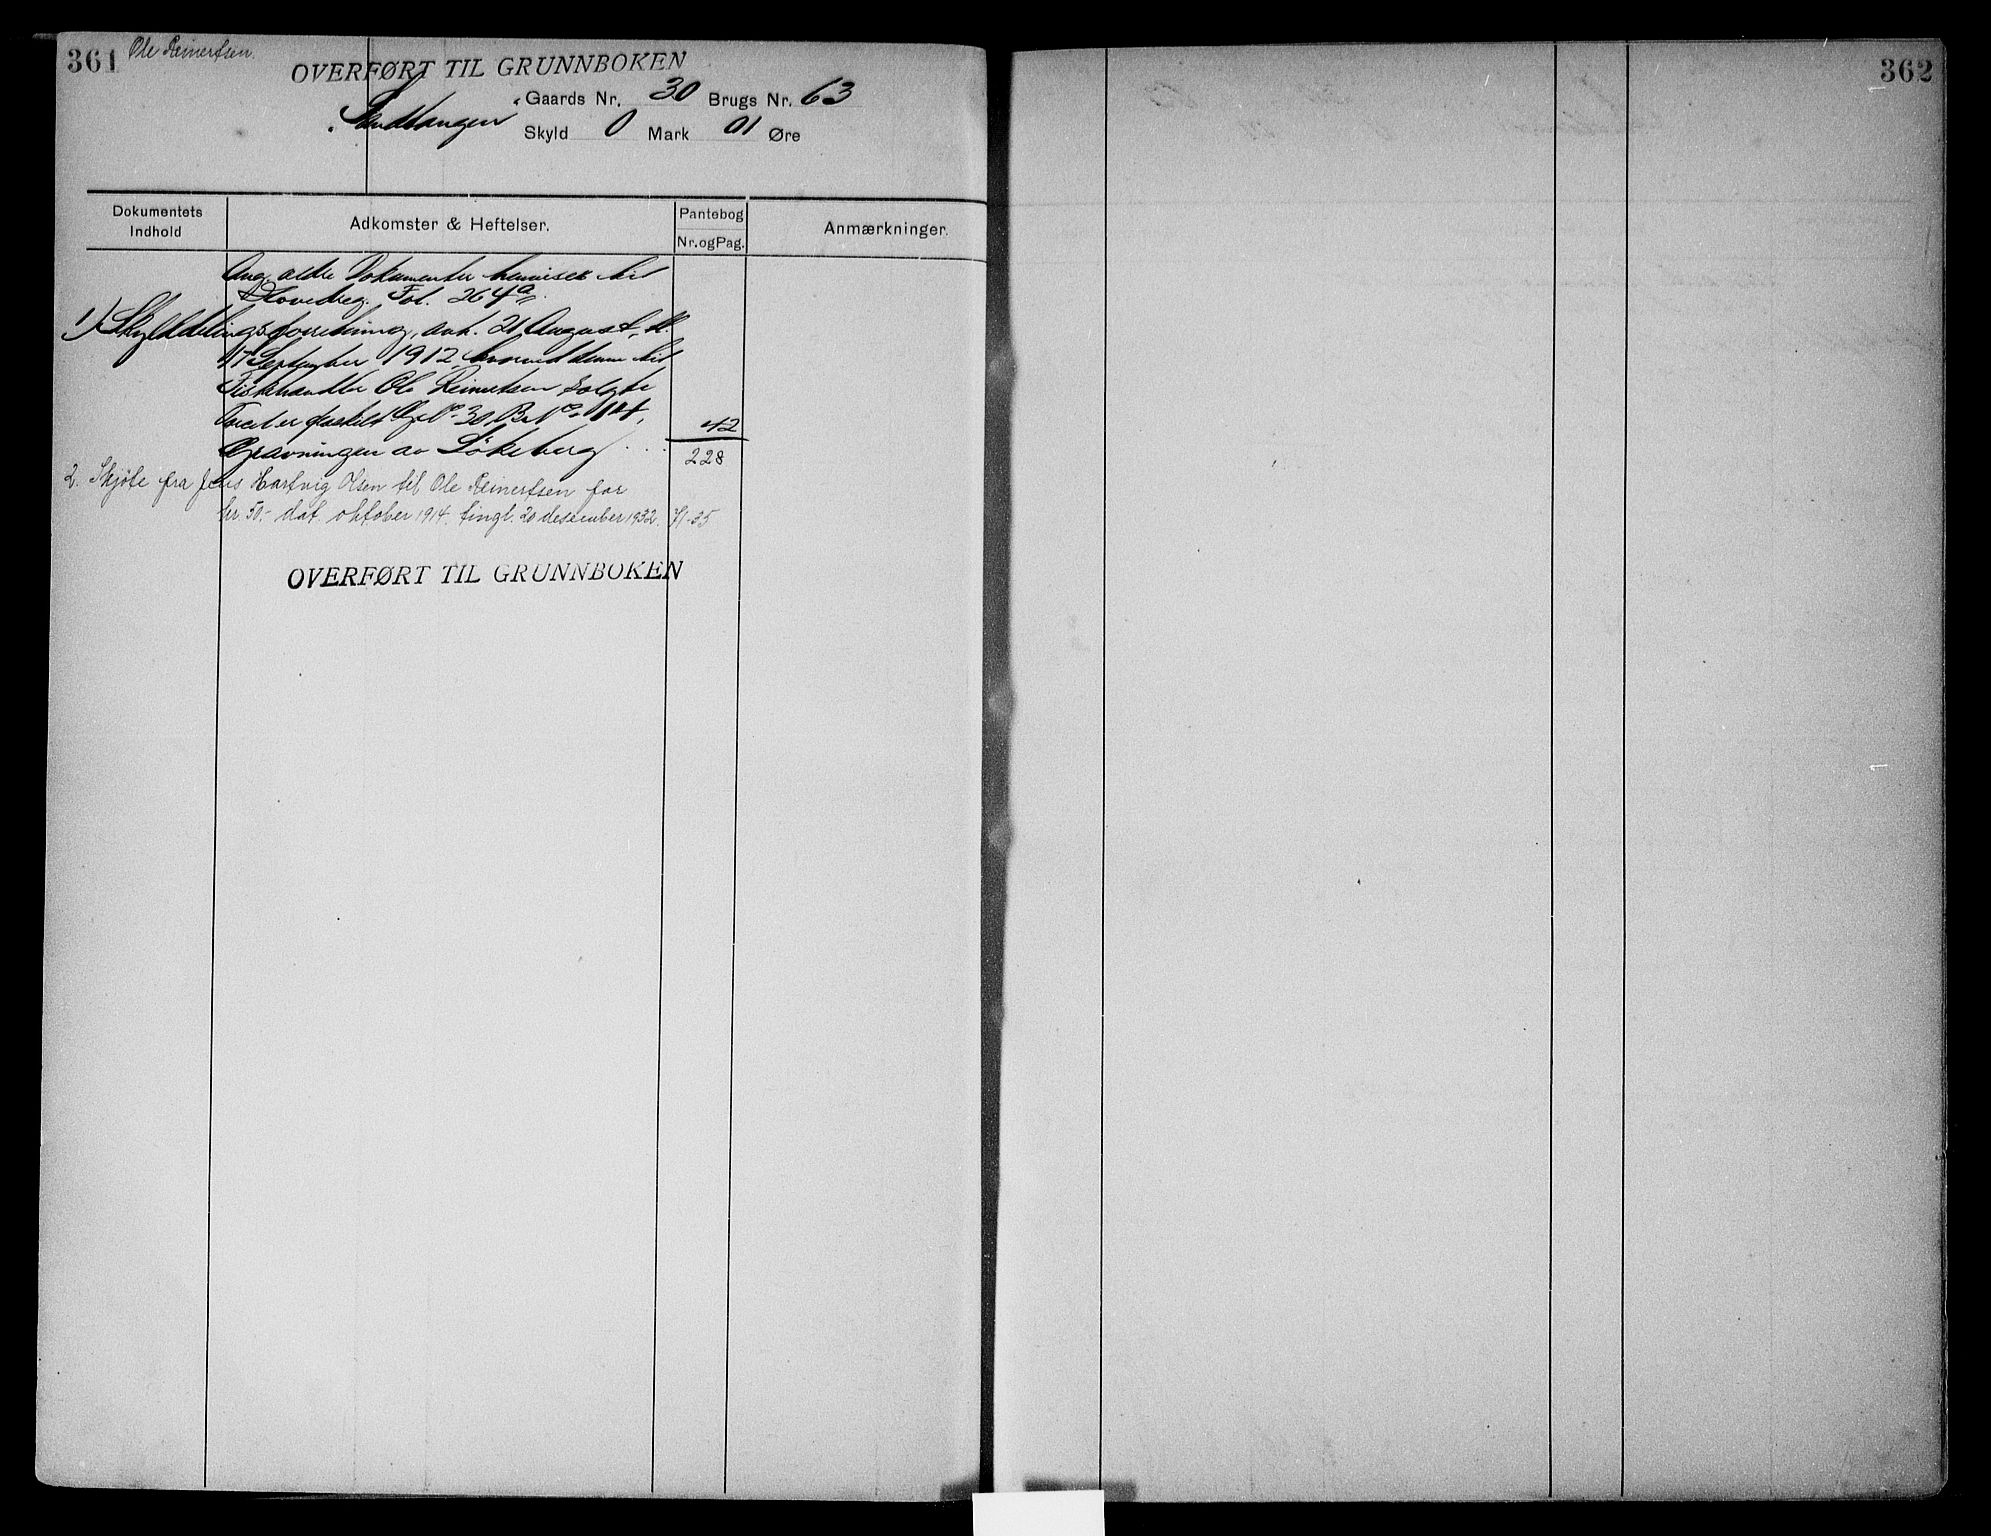 361 Ole Reinertsen.
OVERFØRT TIL GRUNNBOKEN
Gaards Nr. 30 Brugs Nr. 63
Sandtangen
Skyld 0 Mark 01 Øre
Dokumentets Indhold
Adkomster & Heftelser.
Pantebog
Nr. og Pag.
Anmærkninger.
Ang. ældre Dokumenter henvises til
Hovedreg. Fol. 264a
1) Skylddelingsforretning, avh. 21 August, tl.
17 September 1912, hvorved denne til
Fiskehandler Ole Reinertsen solgte
Parcel er fraskilt Gr. No. 30 Br. No. 14,
Gravningen av Søkeberg
42
228
2. Skjøte fra Jens Hartvig Olsen til Ole Reinertsen for
kr. 50.- dat. oktober 1914. tingl. 20 desember 1932. 71-35
OVERFØRT TIL GRUNNBOKEN
362